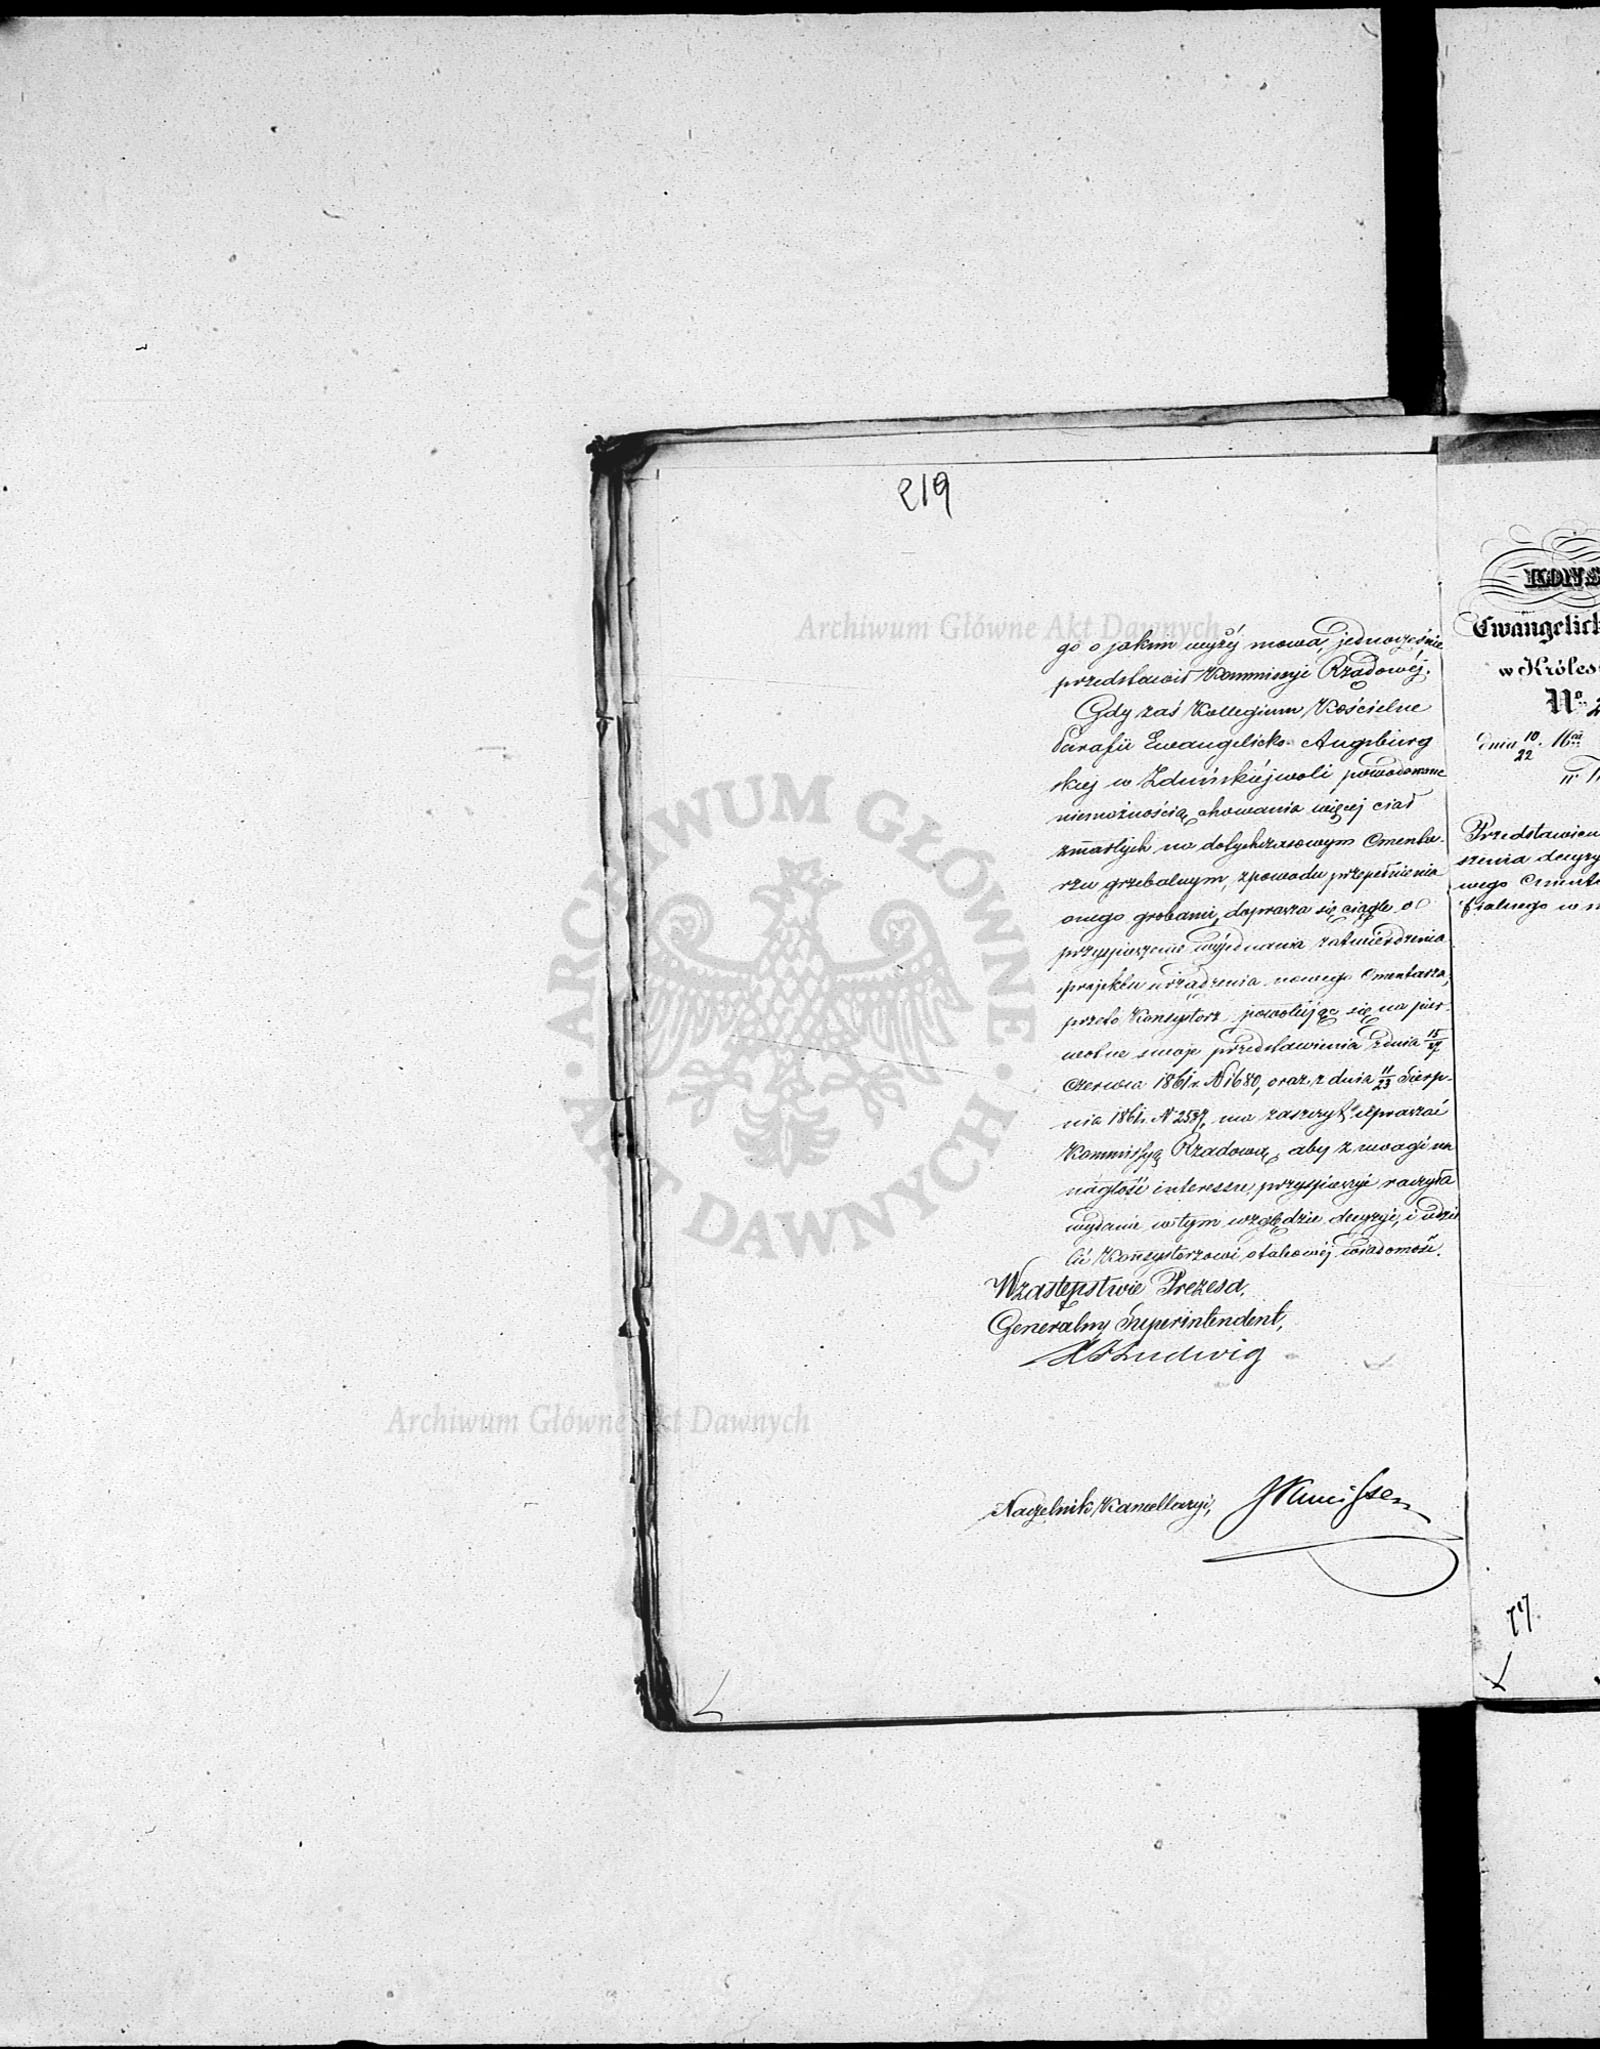 219
go o jakim wyżej mowa, jednocześnie
przedstawił Kommissyi Rządowéj.
Gdy zaś Kollegium Kościelne
Parafii Ewangelicko-Augsburg
skiej w Zduńskiéjwoli powodowane
niemożnością chowania więcej ciał
zmarłych na dotychczasowym Cmenta-
rzu grzebalnym, z powodu przepełnienia
onego grobami, doprasza się ciągle o
przyspieszenie wyjednania zatwierdzenia
projektu urządzenia nowego Cmentarza,
przeto Konsystorz powołując się na pier-
wotne swoje przedstawienia z dnia 15/27
Czerwca 1861 r. N 1680, oraz z dnia 11/23 Sierp-
nia 1861. N 2537, ma zaszczyt upraszać
Kommissyą Rządową, aby z uwagi na
nagłość interessu, przyspieszyć raczyła
wydanie w tym względzie decyzyi, i udzie
lić Konsystorzowi o takowéj wiadomość.
W zastępstwie Prezesa,
Generalny Superintendent,
Ludwig
Naczelnik Kancellaryi,
Ewangelick
w Króles
No 2
dnia 10/22
Przedstawien
szenia decyzy
wego Cmenta
fialnego w
77
Archiwum Główne Akt Dawnych
ARCHIWUM GŁÓWNE
AKT DAWNYCH
Archiwum Główne Akt Dawnych